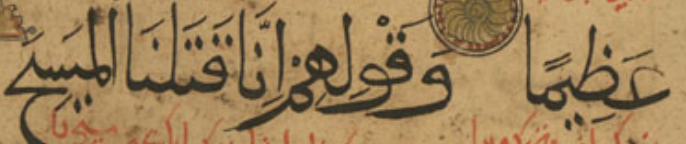 عَظِيمًا وَقَوْلِهِمْ إِنَّا قَتَلْنَا الْمَسِيحَ